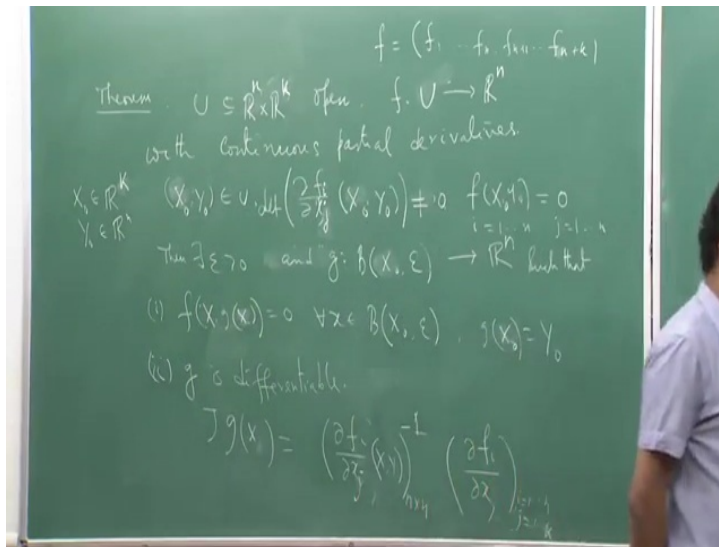 f = (f₁ ... fₙ, fₙ₊₁ ... fₙ₊ₖ)
Theorem. U ⊆ ℝⁿ×ℝᵏ open. f: U → ℝⁿ
with continuous partial derivatives.
X₀ ∈ ℝᵏ (X₀, Y₀) ∈ U, det(∂fᵢ/∂xⱼ (X₀, Y₀)) ≠ 0 f(X₀, Y₀) = 0
Y₀ ∈ ℝⁿ i = 1 ... n j = 1 ... n
Then ∃ ε > 0 and g: B(X₀, ε) → ℝⁿ such that
(i) f(X, g(X)) = 0 ∀ x ∈ B(X₀, ε), g(X₀) = Y₀
(ii) g is differentiable.
J g(X) = (∂fᵢ/∂xⱼ (X, Y))⁻¹ₙₓₙ (∂fᵢ/∂xⱼ) i=1...n
j=1...k